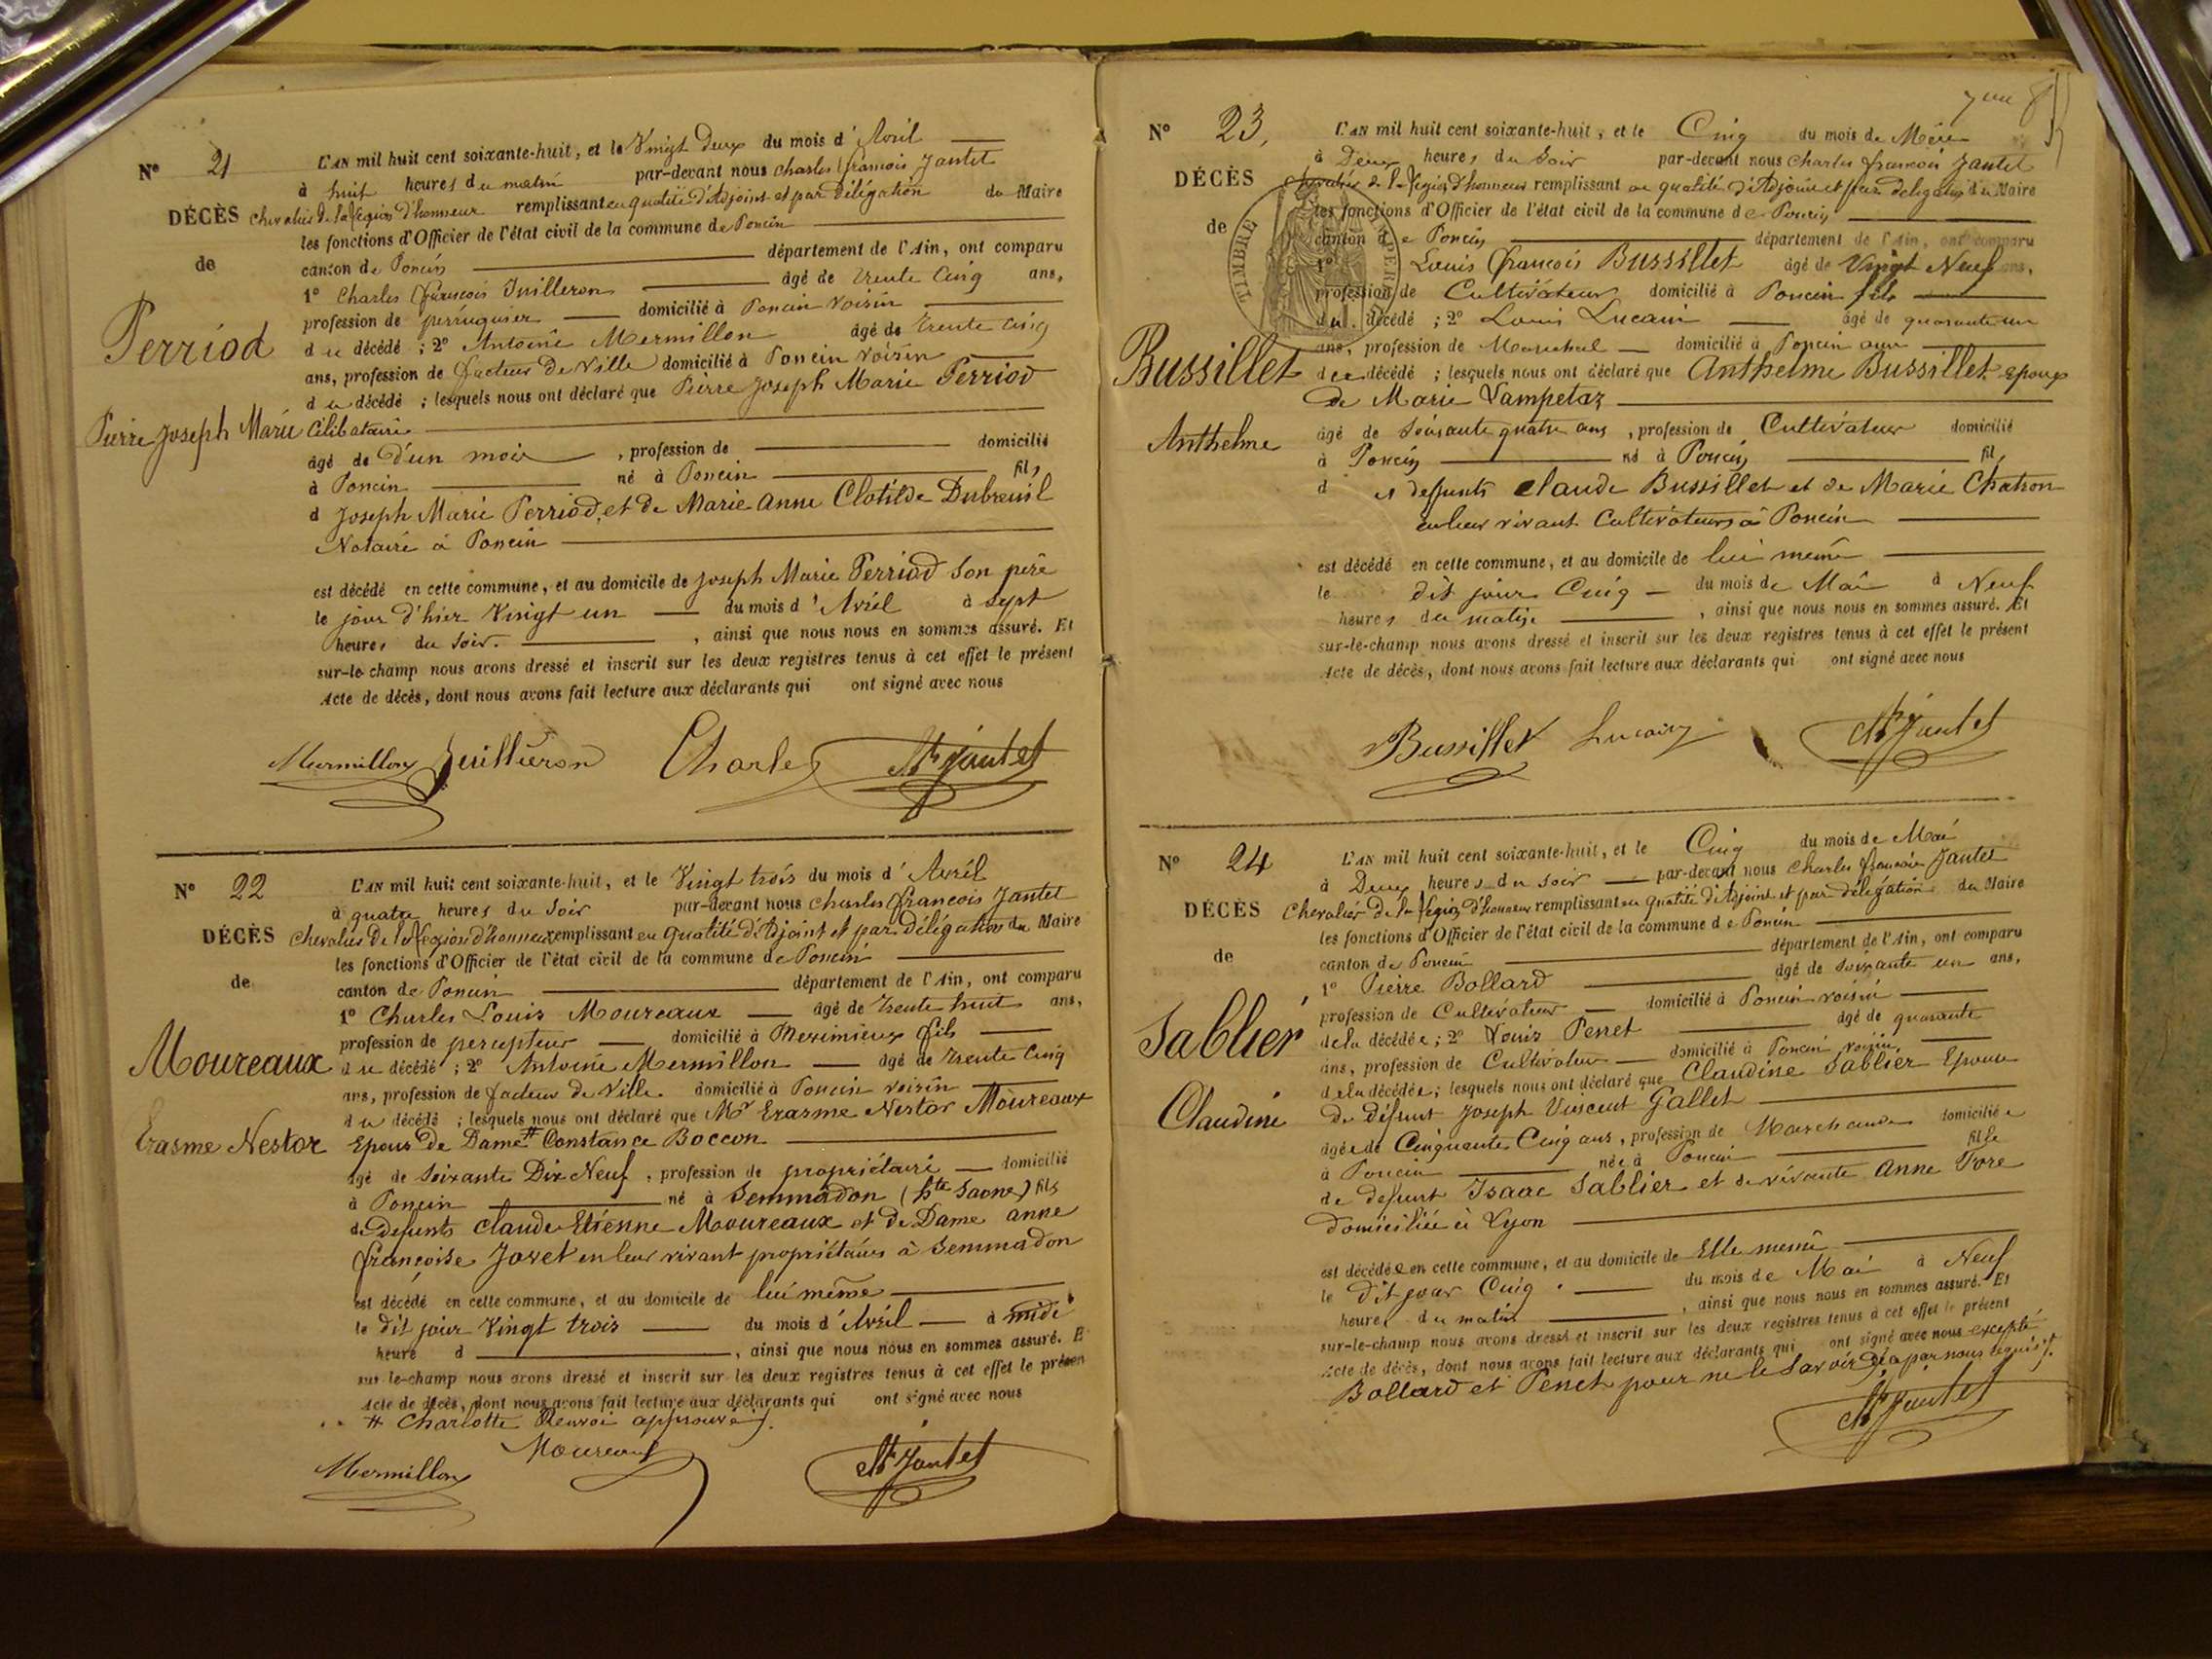 N° 21
L'AN mil huit cent soixante-huit, et le Vingt Deux du mois d'Avril
à huit heures du matin par-devant nous Charles françois Jantet
DÉCÈS chevalier de la légion d'honneur remplissant en qualité d'Adjoint et par Délégation du Maire
les fonctions d'Officier de l'état civil de la commune de Poncin
de
canton de Poncin département de l'Ain, ont comparu
1° Charles françois Juilleron âgé de trente Cinq ans,
profession de perruquier domicilié à Poncin voisin
Perriod
du décédé ; 2° Antoine Mermillon âgé de trente cinq
ans, profession de facteur de Ville domicilié à Poncin voisin
du décédé ; lesquels nous ont déclaré que Pierre Joseph Marie Perriod
Pierre Joseph Marie
célibataire
âgé de d'un mois , profession de domicilié
à Poncin né à Poncin fils
d Joseph Marie Perriod, et de Marie Anne Clotilde Dubreuil
Notaire à Poncin
est décédé en cette commune, et au domicile de Joseph Marie Perriod Son père
le jour d'hier Vingt un du mois d'Avril à sept
heures du soir. , ainsi que nous nous en sommes assuré. Et
sur-le-champ nous avons dressé et inscrit sur les deux registres tenus à cet effet le présent
Acte de décès, dont nous avons fait lecture aux déclarants qui ont signé avec nous
Mermillon Juilleron Charles Jantet
N° 22
L'AN mil huit cent soixante-huit, et le Vingt trois du mois d'Avril
à quatre heures du soir par-devant nous Charles françois Jantet
DÉCÈS chevalier de la légion d'honneur remplissant en qualité d'Adjoint et par Délégation du Maire
les fonctions d'Officier de l'état civil de la commune de Poncin
de
canton de Poncin département de l'Ain, ont comparu
1° Charles Louis Moureaux âgé de trente huit ans,
profession de percepteur domicilié à Meximieux fils
Moureaux
du décédé ; 2° Antoine Mermillon âgé de trente Cinq
ans, profession de facteur de Ville domicilié à Poncin voisin
du décédé ; lesquels nous ont déclaré que Mr Erasme Nestor Moureaux
Erasme Nestor
Epoux de Dame # Constance Boccon
âgé de Soixante Dix Neuf , profession de propriétaire domicilié
à Poncin né à Semmadon (hte Saone) fils
de Defunts Claude Etienne Moureaux et de Dame anne
françoise Joret en leur vivant propriétaires à Semmadon
est décédé en cette commune, et au domicile de lui même
le dit jour Vingt trois du mois d'Avril à midi
heure d , ainsi que nous nous en sommes assuré. E
sur le-champ nous avons dressé et inscrit sur les deux registres tenus à cet effet le présen
Acte de décès, dont nous avons fait lecture aux déclarants qui ont signé avec nous
# Charlotte Renvoi approuvé
Mermillon Moureaux Jantet
N° 23,
L'AN mil huit cent soixante-huit, et le Cinq du mois de Mai
à Deux heures du Soir par-devant nous Charles françois Jantet
DÉCÈS
chevalier de la légion d'honneur remplissant en qualité d'Adjoint et par délégation du Maire
TIMBRE IMPERIAL
les fonctions d'Officier de l'état civil de la commune de Poncin
de
canton de Poncin département de l'Ain, ont comparu
1° Louis françois Bussillet âgé de Vingt Neuf ans,
profession de Cultivateur domicilié à Poncin fils
du décédé ; 2° Louis Lucain âgé de quarante un
ans, profession de Marechal domicilié à Poncin ami
Bussillet
du décédé ; lesquels nous ont déclaré que Anthelme Bussillet epoux
de Marie Vampetaz
Anthelme
âgé de Soixante quatre ans , profession de Cultivateur domicilié
à Poncin né à Poncin fils
d es deffunts Claude Bussillet et de Marie Chatron
en leur vivant Cultivateurs à Poncin
est décédé en cette commune, et au domicile de lui même
le dit jour Cinq du mois de Mai à Neuf
heures du matin , ainsi que nous nous en sommes assuré. Et
sur-le-champ nous avons dressé et inscrit sur les deux registres tenus à cet effet le présent
Acte de décès, dont nous avons fait lecture aux déclarants qui ont signé avec nous
Bussillet Lucain Jantet
N° 24
L'AN mil huit cent soixante-huit, et le Cinq du mois de Mai
à Deux heures du soir par-devant nous Charles françois Jantet
DÉCÈS
Chevalier de la légion d'honneur remplissant en qualité d'Adjoint et par délégation du Maire
les fonctions d'Officier de l'état civil de la commune de Poncin
de
canton de Poncin département de l'Ain, ont comparu
1° Pierre Bollard âgé de soixante un ans,
profession de Cultivateur domicilié à Poncin voisin
Sablier
de la décédée ; 2° Louis Perret âgé de quarante
ans, profession de Cultivateur domicilié à Poncin voisin
de la décédée ; lesquels nous ont déclaré que Claudine Sablier Epouse
Claudine
de défunt Joseph Vincent Gallet
âgée de Cinquante Cinq ans , profession de Marchande domiciliée
à Poncin née à Poncin fille
de defunt Isaac Sablier et de vivante Anne Fore
domiciliée à Lyon
est décédée en cette commune, et au domicile de Elle même
le dit jour Cinq du mois de Mai à Neuf
heures du matin , ainsi que nous nous en sommes assuré. Et
sur-le-champ nous avons dressé et inscrit sur les deux registres tenus à cet effet le présent
Acte de décès, dont nous avons fait lecture aux déclarants qui ont signé avec nous excepté
Bollard et Perret pour ne le savoir de ce par nous requis
Jantet